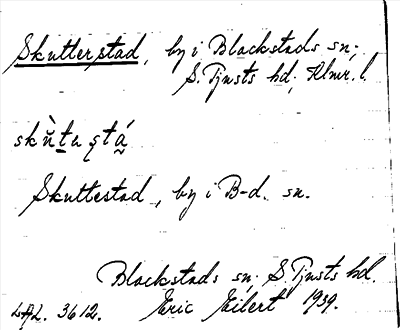 Skutterstad, by i Blackstads sn;
S. Tjusts hd, Klmr. l.
skǜt̠a ştá̰
Skuttestad, by i B-d. sn.
Blackstads sn; S. Tjusts hd.
LAL. 3612. Eric Eilert 1939.